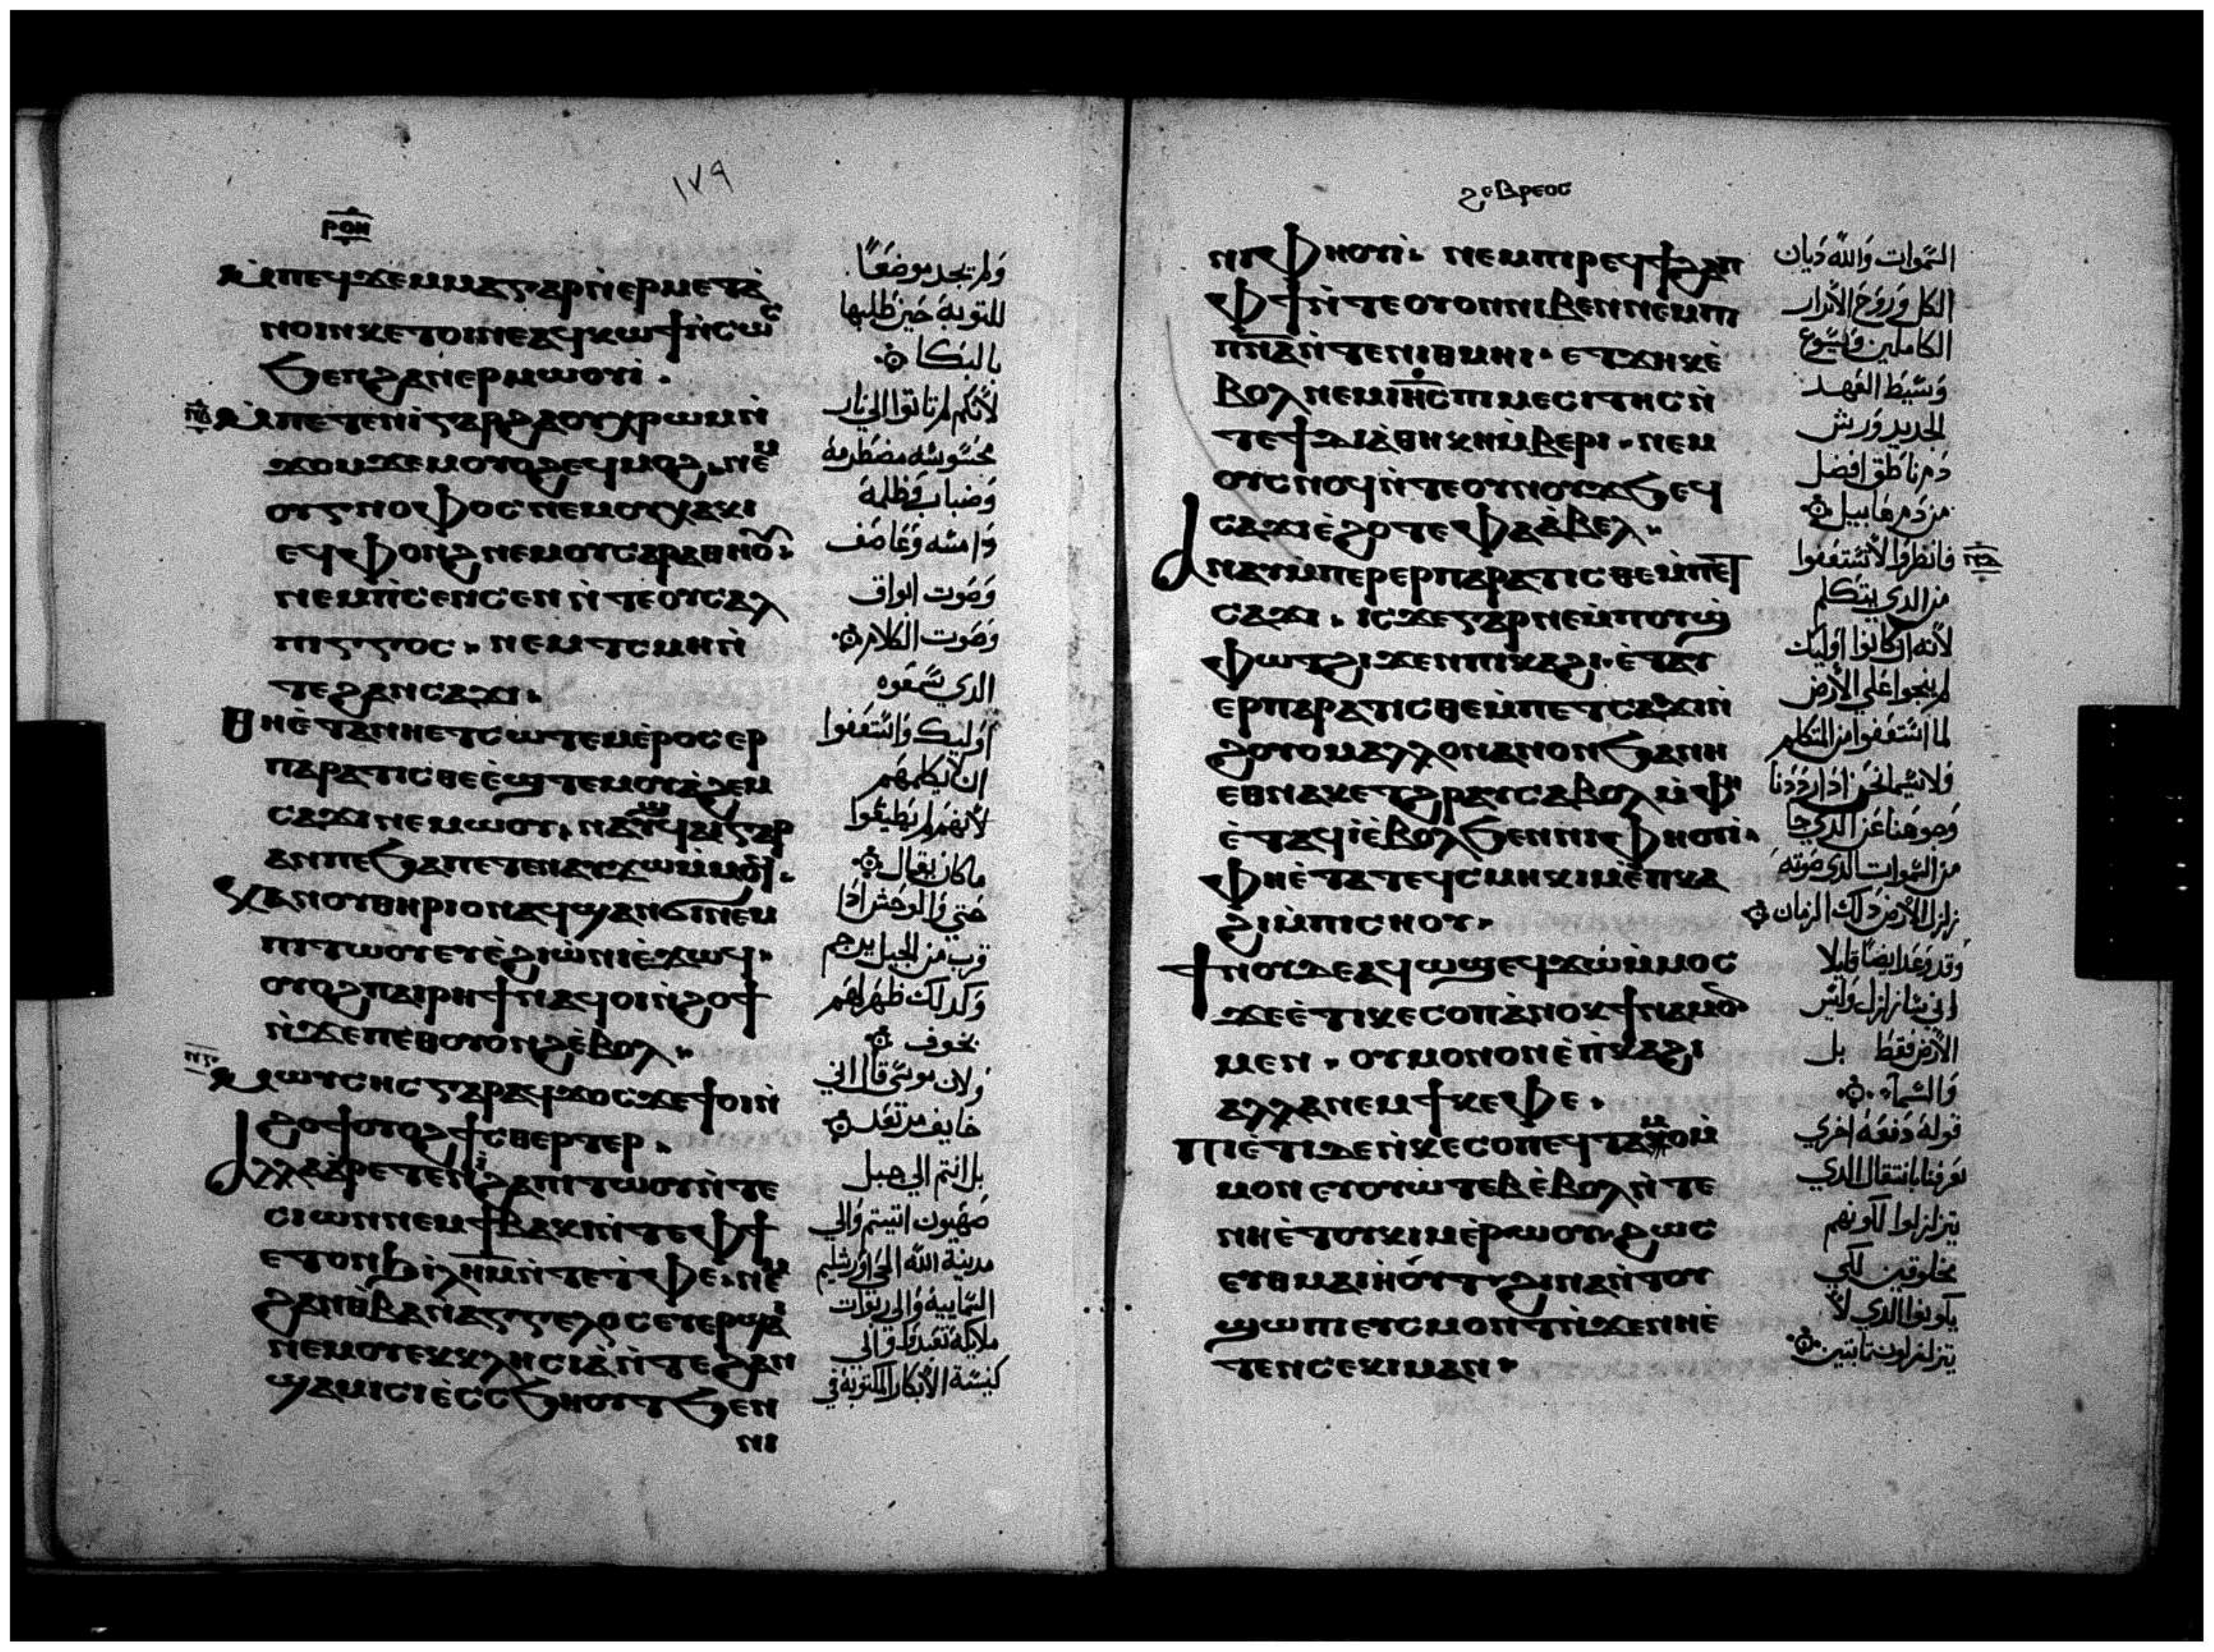 ١٧٩
ⲣⲟⲏ
ⲙⲡⲉϥϫⲉⲙⲙⲁⲅⲁⲣⲛ̀ⲉⲣⲙⲉⲧⲁ̀
ⲛⲟⲓⲛⲕⲉⲧⲟⲓⲛⲉⲁϥⲕⲱϯⲛ̀ⲥⲱⲥ
ϧⲉⲛϩⲁⲛⲉⲣⲙⲱⲟⲩⲓ̀.
ⲙⲡⲉⲧⲉⲛⲓ̀ⲅⲁⲣϩⲁⲟⲩⲭⲣⲱⲙⲛ̀
ϫⲟⲙϫⲉⲙⲟⲩⲟϩⲉϥⲙⲟϩ.ⲛⲉⲙ
ⲟⲩⲅⲛⲟⲫⲟⲥⲛⲉⲙⲟⲩⲭⲁⲕⲓ
ⲉϥⲫⲟⲛϩⲛⲉⲙⲟⲩⲥⲁⲣⲁⲑⲏⲟⲩ.
ⲛⲉⲙⲡⲓ̀ⲥⲉⲛⲥⲉⲛⲛ̀ⲧⲉⲟⲩⲥⲁⲗ
ⲡⲓⲅⲅⲟⲥ.ⲛⲉⲙⲧⲥⲙⲏⲛ̀
ⲧⲉϩⲁⲛⲥⲁϫⲓ.
ⲑⲏⲉ̀ⲧⲁⲛⲏⲉⲧⲥⲱⲧⲉⲙⲉ̀ⲣⲟⲥⲉⲣ
ⲡⲁⲣⲁⲧⲓⲥⲑⲉⲉ̀ϣⲧⲉⲙⲟⲩⲁ̀ϩⲉⲙ
ⲥⲁϫⲓⲛⲉⲙⲱⲟⲩ.ⲛⲁⲩϥⲁⲓⲅⲁⲣ
ⲁⲛⲡⲉϧⲁⲡⲉⲧⲉⲛⲁⲩϫⲱⲙ̀ⲙⲟϥ.
ⲕⲁⲛⲟⲩⲑⲏⲣⲓⲟⲛⲁϥϣⲁⲛϭⲓⲛⲉⲙ
ⲡⲓⲧⲱⲟⲩⲉⲩⲉ̀ϩⲓⲱ̀ⲛⲓⲉ̀ϫⲱϥ.
ⲟⲩⲟϩⲡⲁⲓⲣⲏϯⲛⲁϥⲟⲓⲛ̀ϩⲟϯ
ⲛ̀ϫⲉⲡⲉⲑⲟⲩⲟⲛϩⲉ̀ⲃⲟⲗ.
ⲙⲱⲩⲥⲏⲥⲅⲁⲣⲁϥϫⲟⲥϫⲉϯⲟⲓⲛ̀
ϩⲟϯⲟⲩⲟϩϯⲥⲑⲉⲣⲧⲉⲣ.
ⲁⲗⲗⲁⲁ̀ⲣⲉⲧⲉⲛⲓ̀ϩⲁⲡⲓⲧⲱⲟⲩⲛ̀ⲧⲉ
ⲥⲓⲱⲛⲛⲉⲙϯⲃⲁⲕⲓⲛ̀ⲧⲉⲫϯ
ⲉⲧⲟⲛϧⲓⲗⲏⲙⲛ̀ⲧⲉⲧ̀ⲫⲉ.ⲛⲉⲙ
ϩⲁⲛⲑ̀ⲃⲁⲛ̀ⲁⲅⲅⲉⲗⲟⲥⲉⲧⲉⲣϣⲁⲓ
ⲛⲉⲙⲟⲩⲉⲕⲕⲗⲏⲥⲓⲁ̀ⲛ̀ⲧⲉϩⲁⲛ
ϣⲁⲙⲓⲥⲓⲉ̀ⲥⲥϧⲏⲟⲩⲧϧⲉⲛ
ⲛⲓ
ولم تجد موضعا
للتوبة حين طلبها
بالبكا
لأنكم لم تاتوا الي نار
محسوسه مضطرمة
وضباب وظلمة
دامسه وعاصف
وصوت ابواق
وصوت الكلام
الدي سمعوه
اوليك واستعفوا
ان لا يكلمهم
لأنهم لم يطيقوا
ما كان يقال
حتي والوحش ادا
قرب من الجبل يرجم
وكدلك ظهر لهم
بخوف
ولان موسي قال اني
خايف مرتعد
بل انتم الي جبل
صهيون اتيتم والي
مدينة الله الحي اورشليم
السماييه والي ربوات
ملايكة تعيد والي
كنيسة الأبكار المكتوبة في
ϩⲉⲃⲣⲉⲟⲥ
ⲛⲓⲫⲏⲟⲩⲓ̀.ⲛⲉⲙⲡⲓⲣⲉϥϯϩⲁⲡ
ⲫϯⲛ̀ⲧⲉⲟⲩⲟⲛⲛⲓⲃⲉⲛⲛⲉⲙⲡⲓ
ⲡⲛⲁⲛ̀ⲧⲉⲛⲓⲑⲙⲏⲓ.ⲉⲧϫⲏⲕⲉ̀
ⲃⲟⲗⲛⲉⲙⲓⲏⲥⲡⲓⲙⲉⲥⲓⲧⲏⲥⲛ̀
ⲧⲉϯⲇⲓⲁ̀ⲑⲏⲕⲏⲙ̀ⲃⲉⲣⲓ.ⲛⲉⲙ
ⲟⲩⲥⲛⲟϥⲛ̀ⲧⲉⲟⲩⲛⲟⲩϫϧⲉϥ
ⲥⲁϫⲓⲉ̀ϩⲟⲧⲉⲫⲁⲁ̀ⲃⲉⲗ.
ⲁⲛⲁⲩⲙ̀ⲡⲉⲣⲉⲣⲡⲁⲣⲁⲧⲓⲥⲑⲉⲙ̀ⲡⲉⲧ
ⲥⲁϫⲓ.ⲓⲥϫⲉⲅⲁⲣⲛⲉⲙ̀ⲡⲟⲩϣ̀
ⲫⲱⲧϩⲓϫⲉⲛⲡⲓⲕⲁϩⲓ.ⲉ̀ⲧⲁⲩ
ⲉⲣⲡⲁⲣⲁⲧⲓⲥⲑⲉⲙ̀ⲡⲉⲧⲥⲁϫⲓⲛ̀
ϩⲟⲩⲟⲙⲁⲗⲗⲟⲛⲁⲛⲟⲛϧⲁⲛⲏ
ⲉⲑⲛⲁⲕⲉⲧϩⲣⲁⲩⲥⲁⲃⲟⲗⲙ̀ⲫⲏ
ⲉ̀ⲧⲁϥⲓ̀ⲉ̀ⲃⲟⲗϧⲉⲛⲛⲓⲫⲏⲟⲩⲓ̀.
ⲫⲏⲉ̀ⲧⲁⲧⲉϥⲥⲙⲏⲕⲓⲙⲉ̀ⲡⲕⲁ
ϩⲓⲙ̀ⲡⲓⲥⲏⲟⲩ.
ϯⲛⲟⲩⲇⲉⲁϥⲱϣⲉϥϫⲱⲙ̀ⲙⲟⲥ
ϫⲉⲉ̀ⲧⲓⲕⲉⲥⲟⲡⲁ̀ⲛⲟⲕϯⲛⲁⲙⲟ
ⲙⲉⲛ.ⲟⲩⲙⲟⲛⲟⲛⲉ̀ⲡ̀ⲕⲁϩⲓ
ⲁⲗⲗⲁⲛⲉⲙϯⲕⲉⲫⲉ.
ⲡⲓⲉ̀ⲧⲓⲇⲉⲛ̀ⲕⲉⲥⲟⲡⲉϥⲧⲁⲙⲟⲙ̀
ⲙⲟⲛⲉⲩⲟⲩⲱⲧⲉⲃⲉ̀ⲃⲟⲗⲛ̀ⲧⲉ
ⲛⲏⲉ̀ⲧⲟⲩⲕⲓⲙⲉ̀ⲣⲱⲟⲩ.ϩⲱⲥ
ⲉⲩⲑⲙⲁⲓⲏⲟⲩⲧ.ϩⲓⲛⲁⲛ̀ⲧⲟⲩ
ϣⲱⲡⲓⲉⲩⲥⲙⲟⲛⲧⲛ̀ϫⲉⲛⲏⲉ̀
ⲧⲉⲛⲥⲉⲕⲓⲙⲁⲛ.
السموات والله ديان
الكل وروح الأبرار
الكاملين ويسوع
وسيط العهد
الجديد ورش
دم ناطق افضل
من دم هابيل
فانظروا لا تستعفوا
من الدي يتكلم
لأنه ان كانوا اوليك
لم ينجوا علي الأرض
لما استعفوا من المتكلم
ولا سيما نحن ادا رددنا
وجوهنا عن الدي جا
من السموات الدي صوته
زلزل الأرض دلك الزمان
وقد وعد ايضا قايلا
اني سازلزل وليس
الأرض فقط بل
والسماء
قوله دفعة اخري
يعرفنا بانتقال الدي
يتزلزلوا لكونهم
مخلوقين لكي
يكونوا الدي لا
يتزلزلون تابتين